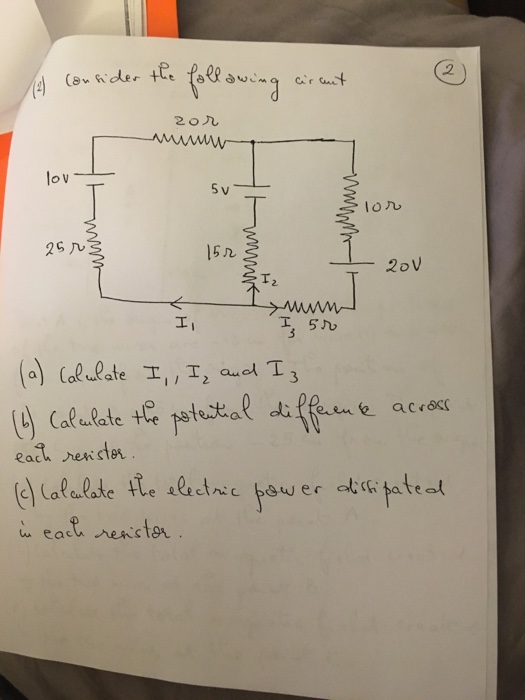 (2) Consider the following circuit
2
20Ω
10V
5V
10Ω
25Ω
15Ω
20V
I₂
I₁
I₃ 5Ω
(a) Calculate I₁, I₂ and I₃
(b) Calculate the potential difference across
each resistor.
(c) Calculate the electric power dissipated
in each resistor.